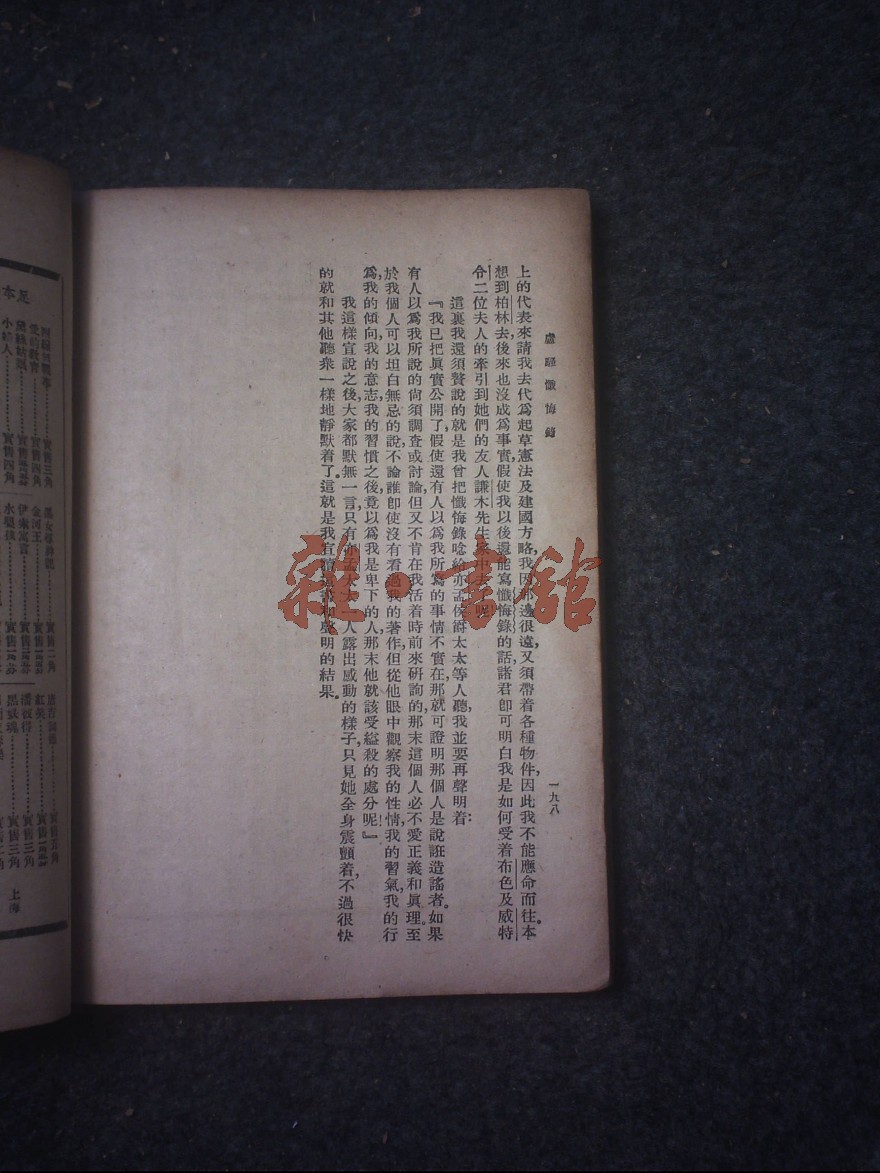 盧騷懺悔錄
一九八
上的代表來請我去代爲起草憲法及建國方略,我因那邊很遠,又須帶着各種物件,因此我不能應命而往。本
想到柏林去,後來也沒成爲事實,假使我以後還能寫懺悔錄的話,諸君卽可明白我是如何受着布色及威特
令二位夫人的牽引到她們的友人謙木先生家中去呢
這裏我還須贅說的就是我曾把懺悔錄唸給亦孟侯爵太太等人聽,我並要再聲明着:
『我已把眞實公開了,假使還有人以爲我所爲的事情不實在,那就可證明那個人是說誑造謠者。如果
有人以爲我所說的尙須調查或討論,但又不肯在我活着時前來研詢的,那末這個人必不愛正義和眞理。至
於我個人可以坦白無忌的說,不論誰卽使沒有看過我的著作,但從他眼中觀察我的性情,我的習氣,我的行
爲,我的傾向,我的意志,我的習慣之後,竟以爲我是卑下的人,那末他就該受縊殺的處分呢!』
我這樣宣說之後,大家都默無一言,只有亦孟太太一人露出感動的樣子,只見她全身震顫着,不過很快
的就和其他聽衆一樣地靜默着了。這就是我宣讀和聲明的結果。
雜·書館
足本
愛的教育………實售四角
小婦人………實售四角
金河王
伊索寓言
水孩子
實售二角
紅葉………實售三角
潘彼得………實售三角
上海